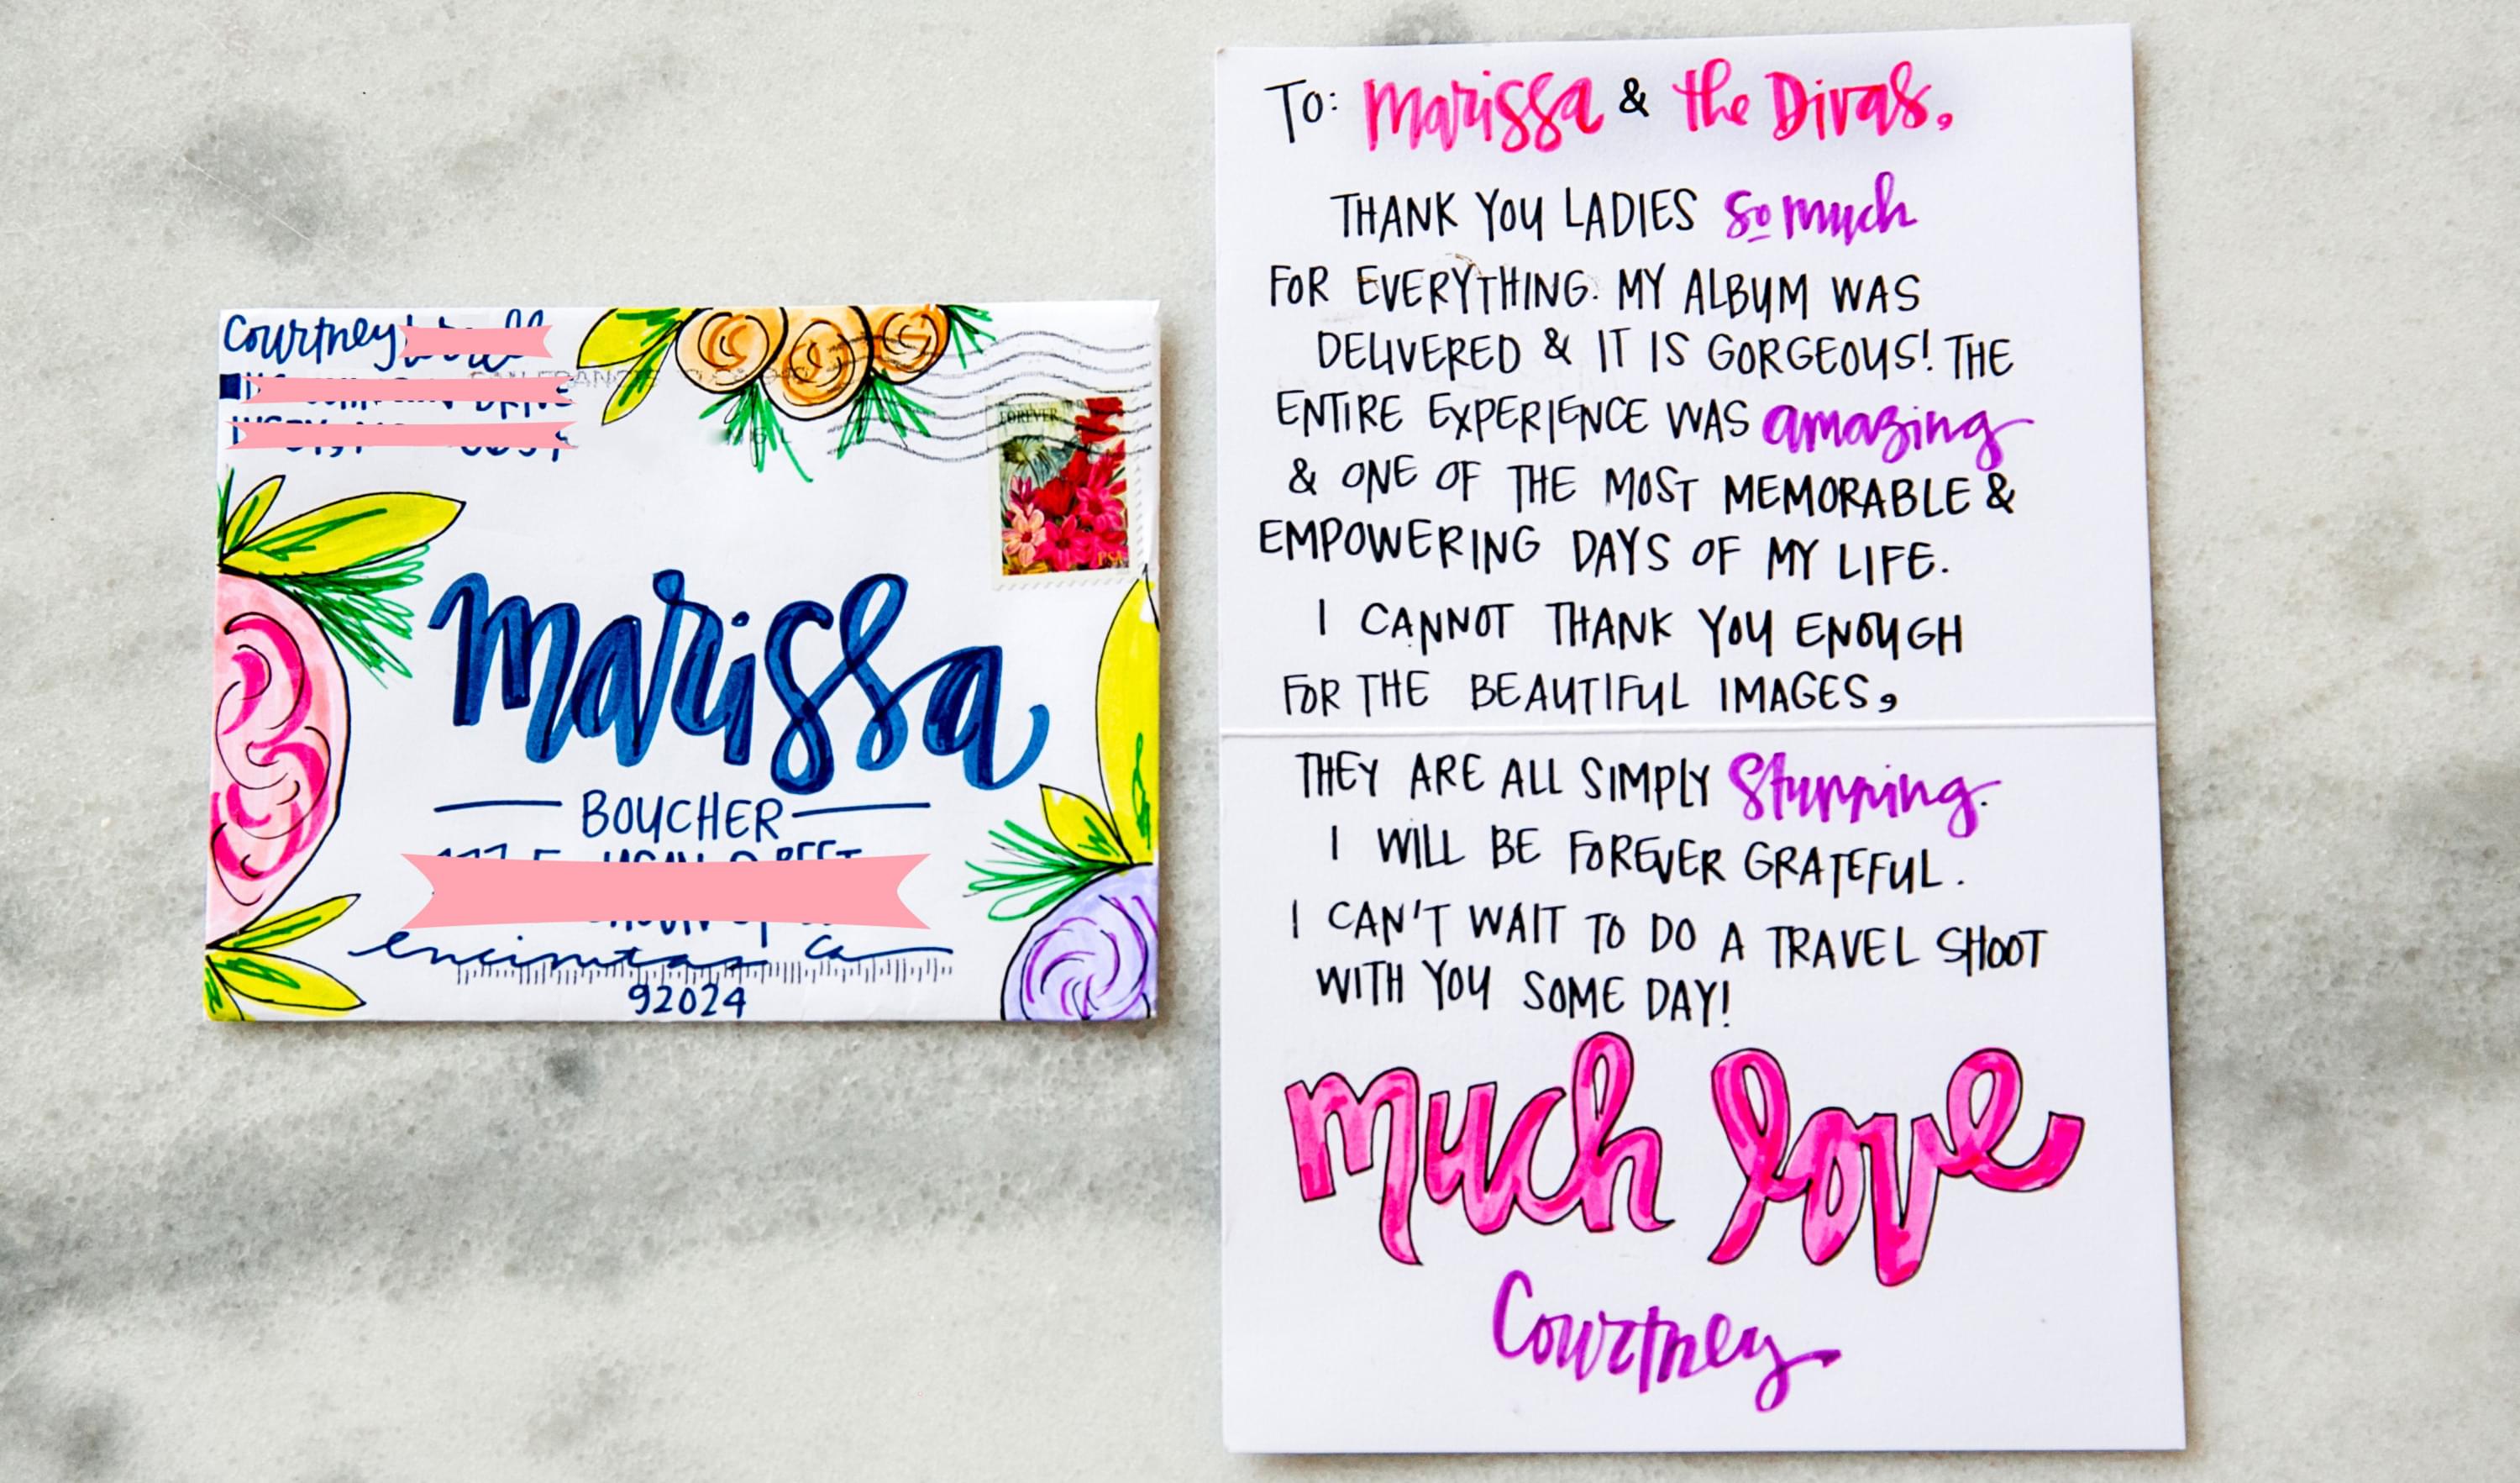 Courtney
FOREVER
USA
marissa
BOUCHER
encinitas ca
92024
To: marissa & the Divas,
THANK YOU LADIES so much
FOR EVERYTHING. MY ALBUM WAS
DELIVERED & IT IS GORGEOUS! THE
ENTIRE EXPERIENCE WAS amazing
& ONE OF THE MOST MEMORABLE &
EMPOWERING DAYS OF MY LIFE.
I CANNOT THANK YOU ENOUGH
FOR THE BEAUTIFUL IMAGES,
THEY ARE ALL SIMPLY Stunning.
I WILL BE FOREVER GRATEFUL.
I CAN'T WAIT TO DO A TRAVEL SHOOT
WITH YOU SOME DAY!
much love
Courtney